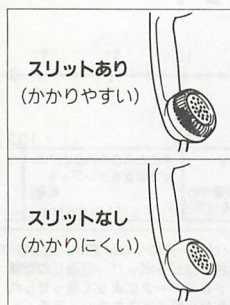 スリットあり
(かかりやすい)
スリットなし
(かかりにくい)